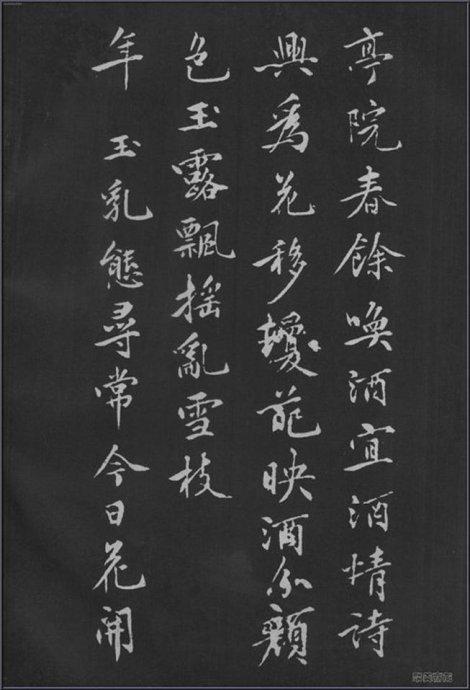 亭院春餘喚酒宜酒情詩
興爲花移葩映酒分顏
色玉露飄搖亂雪枝
年玉乳態尋常今日花開